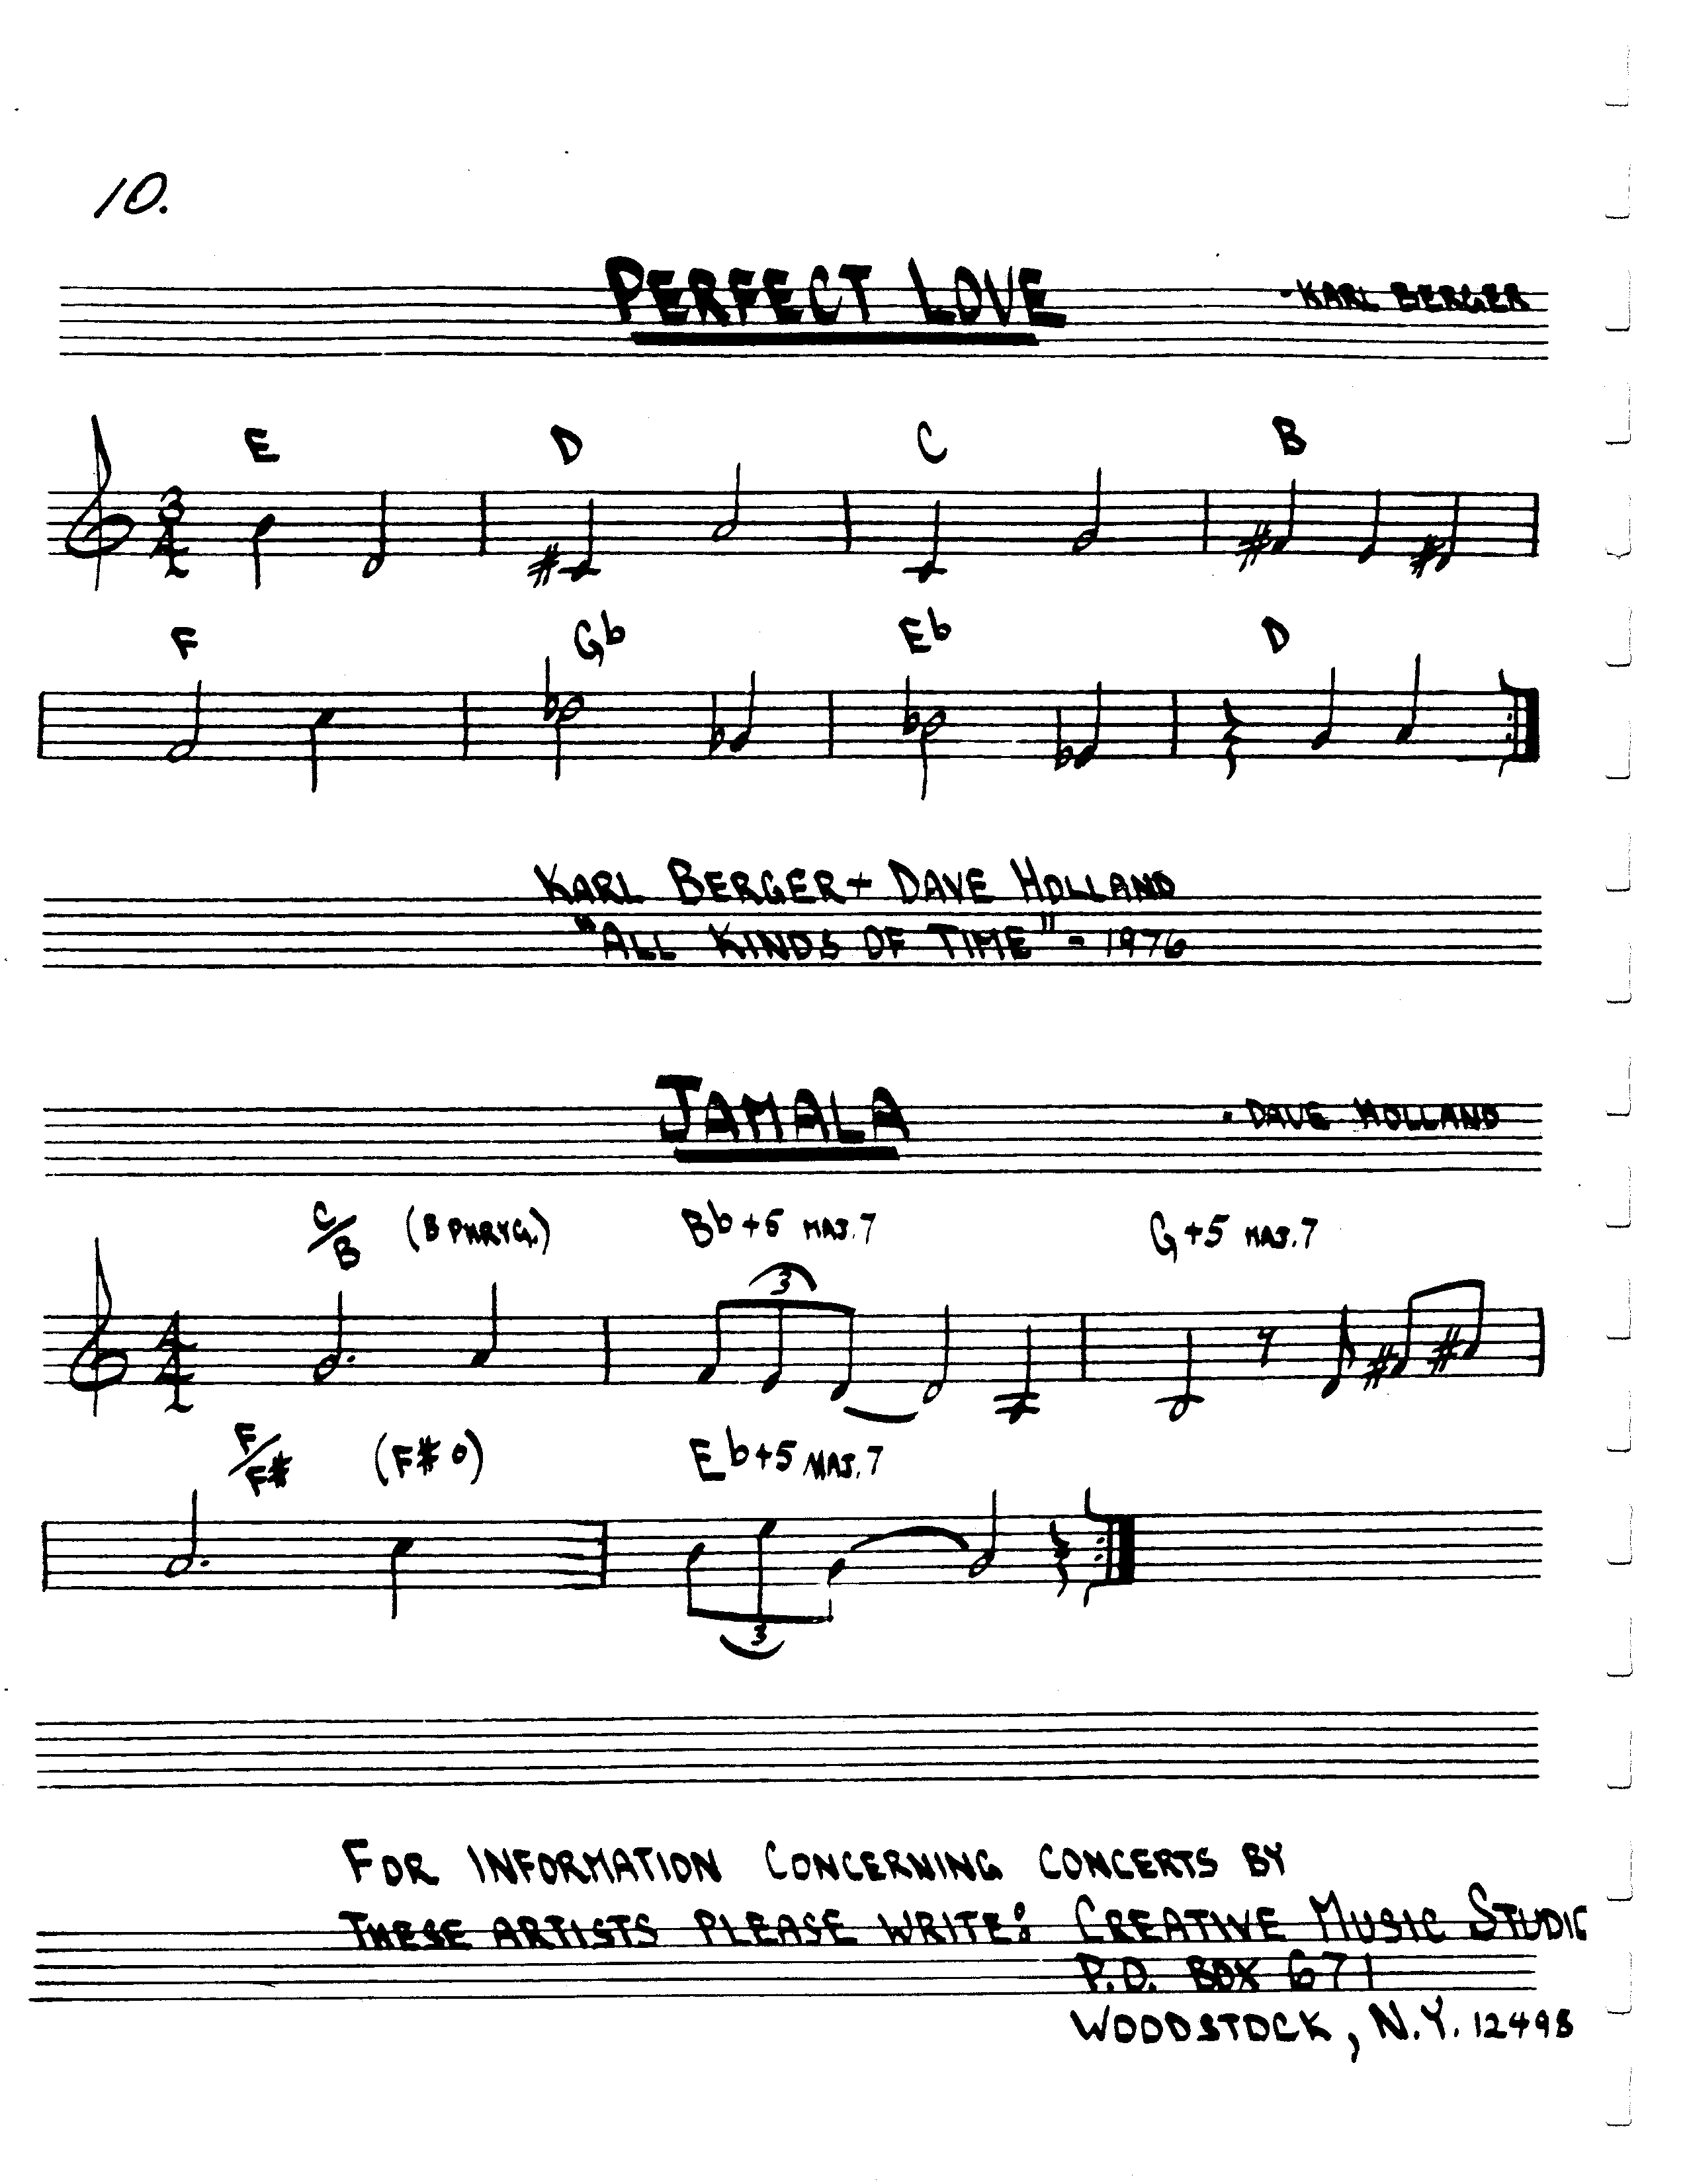 10.
PERFECT LOVE
- KARL BERGER
E D C B
3
4
F Gb Eb D
KARL BERGER + DAVE HOLLAND
"ALL KINDS OF TIME" - 1976
JAMALA
- DAVE HOLLAND
C/B (B PHRYG.) Bb+5 MAJ.7 G+5 MAJ.7
3
4
4
F/F# (F# o) Eb+5 MAJ.7
3
FOR INFORMATION CONCERNING CONCERTS BY
THESE ARTISTS PLEASE WRITE: CREATIVE MUSIC STUDIO
P.O. BOX 671
WOODSTOCK, N.Y. 12498